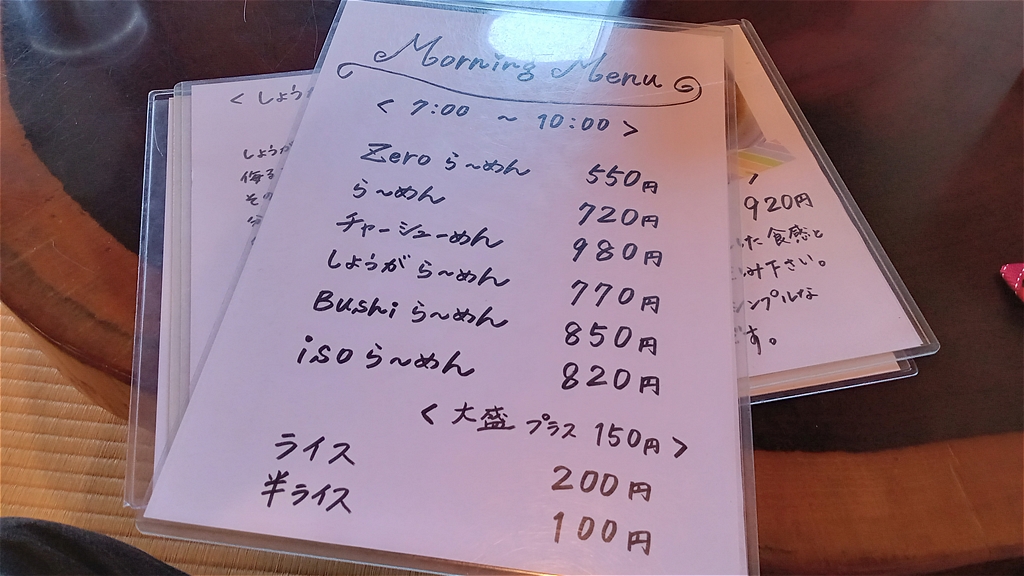 Morning Menu
< 7:00 ～ 10:00 >
Zero ら～めん 550円
ら～めん 720円
チャーシューめん 980円
しょうがら～めん 770円
Bushi ら～めん 850円
iso ら～めん 820円
< 大盛 プラス 150円 >
ライス 200円
半ライス 100円
< しょう
しょうが
侮る
その
920円
た食感と
み下さい。
シンプルな
す。